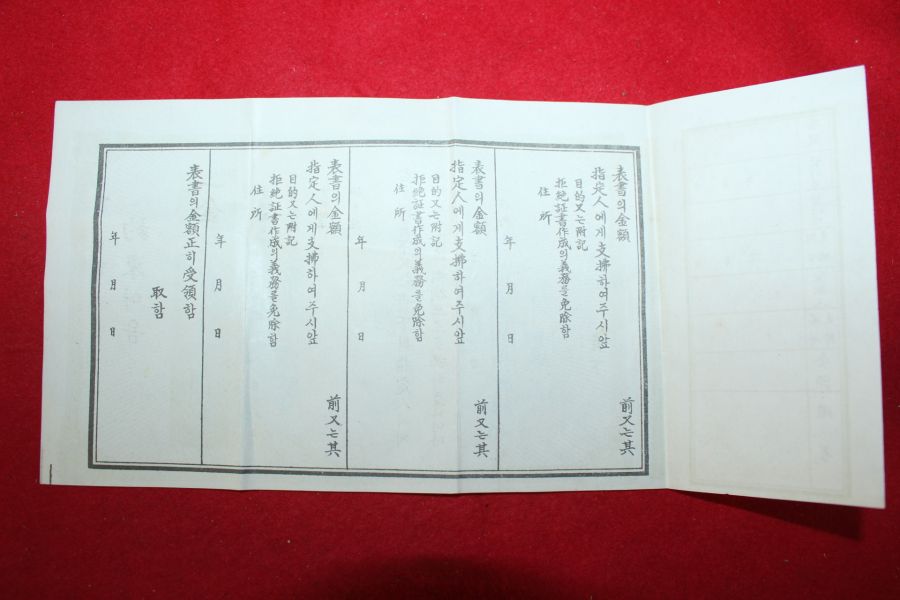 表書의金額 前又는其
指定人에게支拂하여주시앞
目的又는附記
拒絶証書作成의義務를免除함
住所
年 月 日
表書의金額 前又는其
指定人에게支拂하여주시앞
目的又는附記
拒絶証書作成의義務를免除함
住所
年 月 日
表書의金額 前又는其
指定人에게支拂하여주시앞
目的又는附記
拒絶証書作成의義務를免除함
住所
年 月 日
表書의金額正히受領함
取함
年 月 日